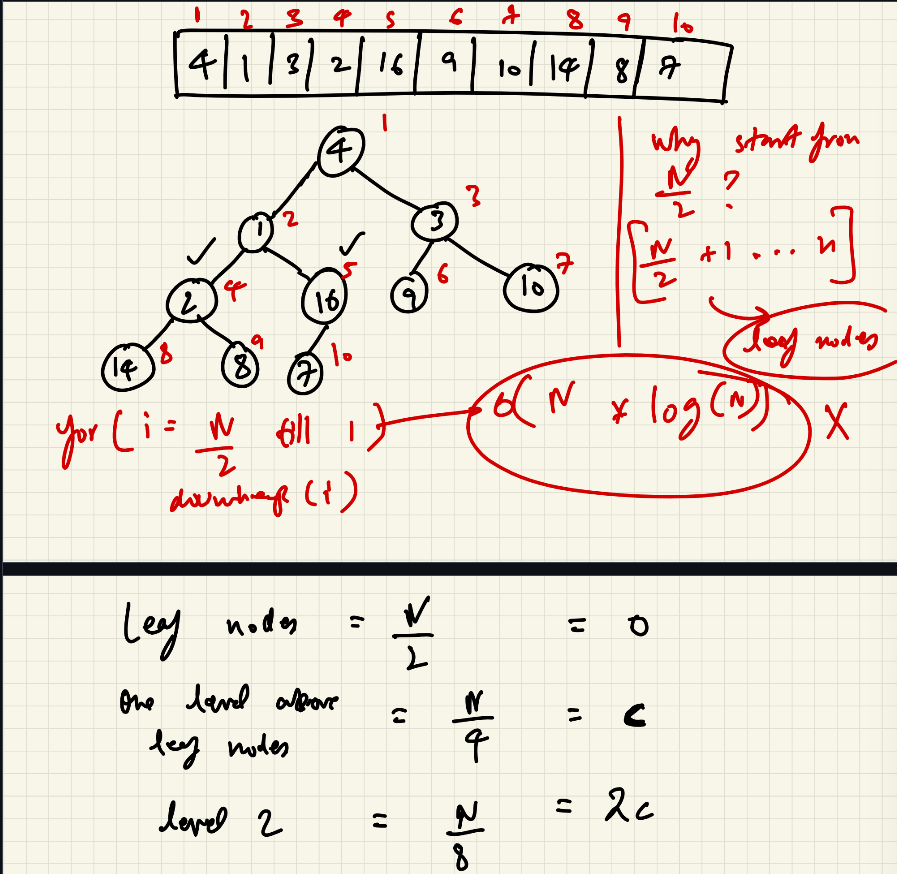 1 2 3 4 5 6 7 8 9 10
4 1 3 2 16 9 10 14 8 7
4 1
1 2 3 3
2 4 16 5 9 6 10 7
14 8 8 9 7 10
why start from
N/2 ?
[N/2 +1 .... n]
leaf nodes
for ( i = N/2 till 1 )
downheap (i)
O( N * log(N)) X
Leaf nodes = N/2 = 0
One level above
leaf nodes = N/4 = c
level 2 = N/8 = 2c